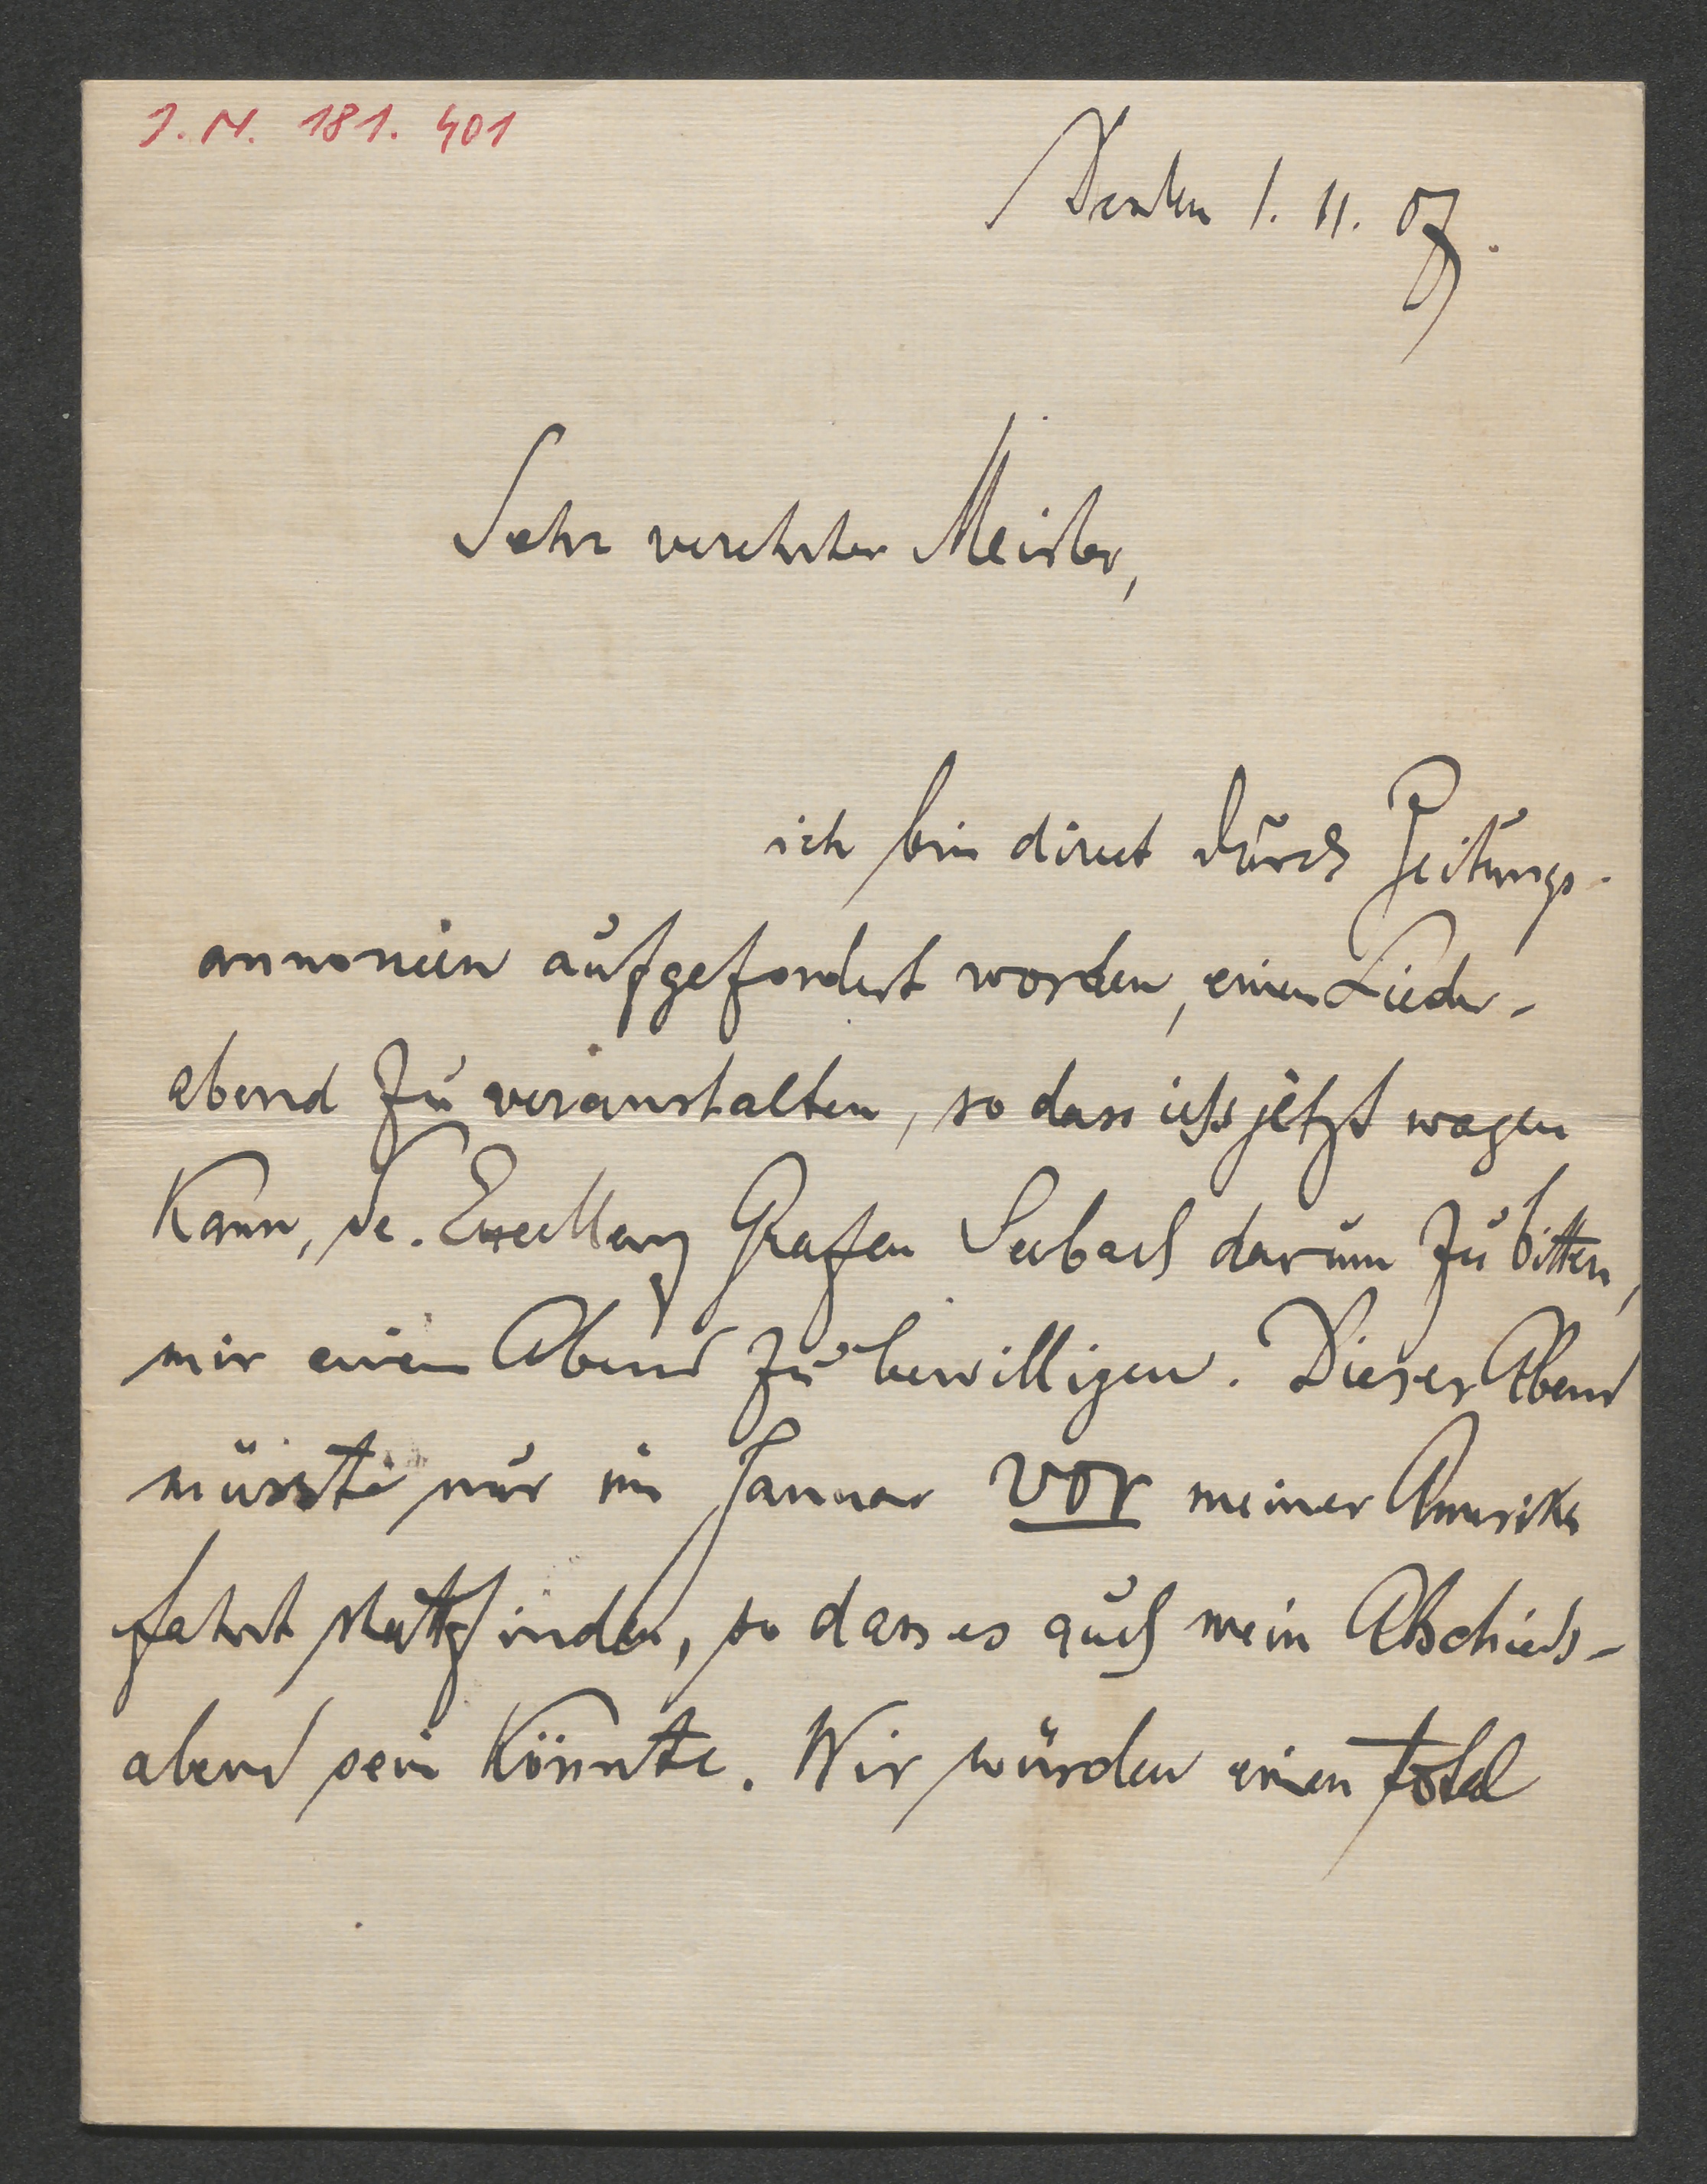 J. N. 181. 401
Dresden 1. 11. 07.
Sehr verehrter Meister,
ich bin direct durch Zeitungs-
annoncen aufgefordert worden, einen Lieder-
abend zu veranstalten, so dass ichs jetzt wagen
kann, Se. Excellenz Grafen Seebach darum zu bitten,
mir einen Abend zu bewilligen. Dieser Abend
müsste nur im Januar vor meiner Amerika
fahrt stattfinden, so dass es auch mein Abschieds-
abend sein könnte. Wir würden einen total